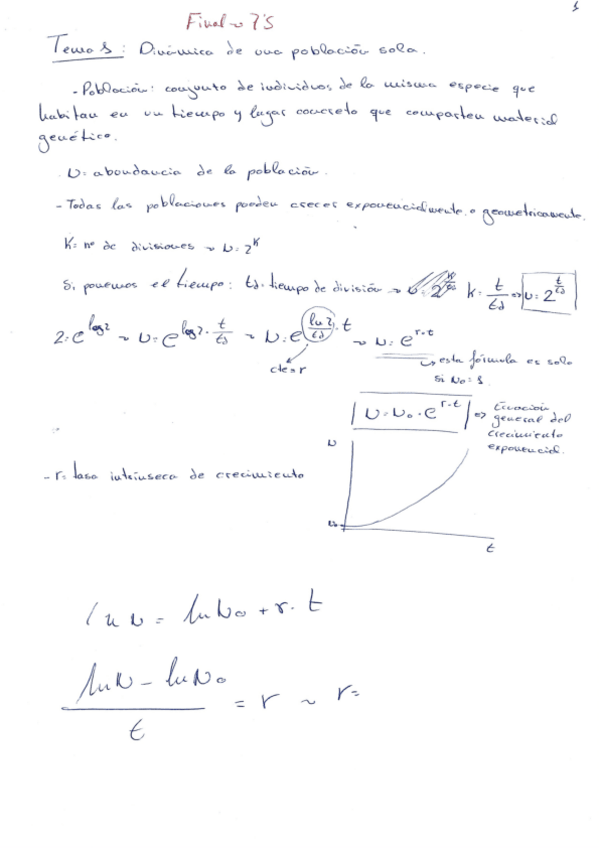 1
Final → 7'5
Tema 1: Dinámica de una población sola.
- Población: conjunto de individuos de la misma especie que
habitan en un tiempo y lugar concreto que comparten material
genético.
N= abundancia de la población.
- Todas las poblaciones pueden crecer exponencialmente o geometricamente.
K= nº de divisiones → N=2^K
Si ponemos el tiempo: td= tiempo de división → K= t/td ⇒ N=2^(t/td)
2=e^(log2) → N=e^(log2·t/td) → N=e^(ln2/td · t) → N=e^(r·t)
cte=r
esta fórmula es solo
si No=1.
N=No·e^(r·t) ⇒ Ecuación
general del
crecimiento
exponencial.
N
- r= tasa intrínseca de crecimiento
No
t
ln N = ln No + r·t
(ln N - ln No)/t = r → r=